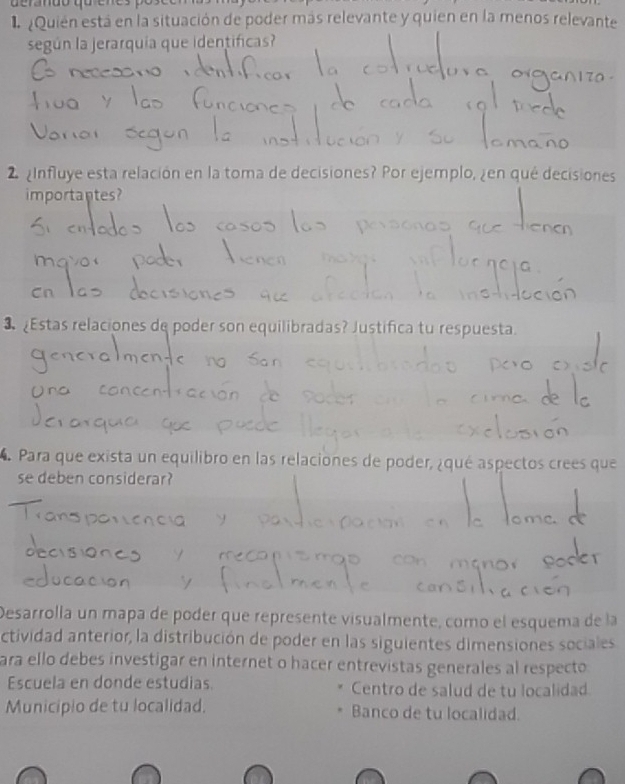 1. ¿Quién está en la situación de poder más relevante y quien en la menos relevante
según la jerarquía que identificas?
Es necesario identificar la estructura organiza-
tiva y las funciones, de cada rol puede
Variar segun la institución y su tamaño
2. ¿Influye esta relación en la toma de decisiones? Por ejemplo, ¿en qué decisiones
importantes?
Si entodos los casos las personas que tienen
mayor poder tienen mayor influencia.
en las decisiones que afecten la institución
3. ¿Estas relaciones de poder son equilibradas? Justifica tu respuesta.
generalmente no son equilibradas pero existe
una concentración de poder en la cima de la
Jerarqua que puede llegar a la exclusión
4. Para que exista un equilibro en las relaciones de poder, ¿qué aspectos crees que
se deben considerar?
Transparencia y participación en la toma de
decisiones y mecanismos con menor poder
educacion y finalmente consiliación
Desarrolla un mapa de poder que represente visualmente, como el esquema de la
ctividad anterior, la distribución de poder en las siguientes dimensiones sociales
ara ello debes investigar en internet o hacer entrevistas generales al respecto
Escuela en donde estudias.
• Centro de salud de tu localidad.
Municipio de tu localidad.
• Banco de tu localidad.